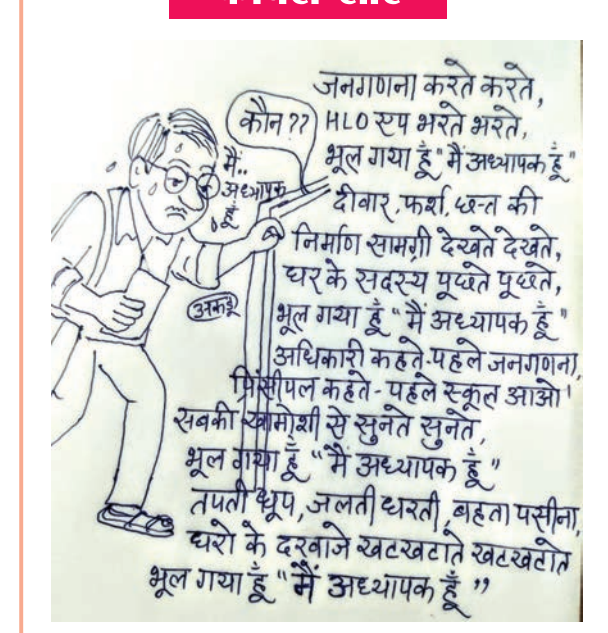 कौन??
मैं..
अध्यापक
हूँ
अकडू
जनगणना करते करते,
HLO एप भरते भरते,
भूल गया हूँ "मैं अध्यापक हूँ"
दीवार, फर्श, छत की
निर्माण सामग्री देखते देखते,
घर के सदस्य पूछते पूछते,
भूल गया हूँ "मैं अध्यापक हूँ"
अधिकारी कहते-पहले जनगणना,
प्रिंसीपल कहते - पहले स्कूल आओ
सबकी खामोशी से सुनते सुनते,
भूल गया हूँ "मैं अध्यापक हूँ"
तपती धूप, जलती धरती, बहता पसीना,
घरो के दरवाजे खटखटाते खटखटाते
भूल गया हूँ "मैं अध्यापक हूँ"